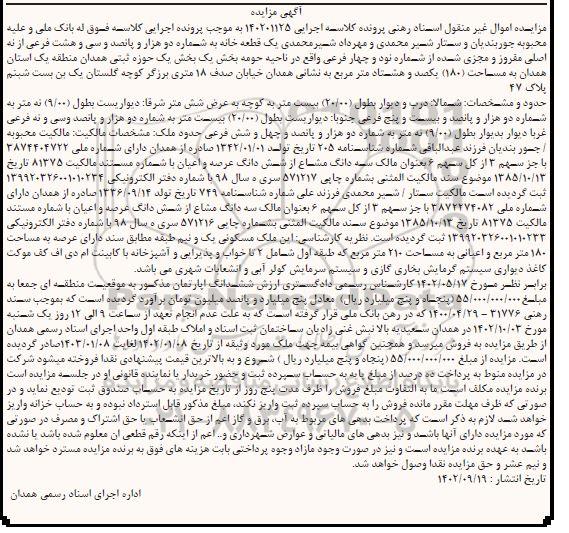 آگهی مزایده
مزایده اموال غیر منقول اسناد رهنی پرونده کلاسه اجرایی ۱۴۰۲۰۱۱۲۵ به موجب پرونده اجرایی کلاسه فوق له بانک ملی و علیه
محبوبه جوربندیان و ستار شیر محمدی و مهرداد شیرمحمدی یک قطعه خانه به شماره دو هزار و پانصد و سی و هشت فرعی از نه
اصلی مفروز و مجزی شده از شماره نود و چهار فرعی واقع در ناحیه حومه بخش یک بخش یک حوزه ثبتی همدان منطقه یک استان
همدان به مساحت (۱۸۰) یکصد و هشتاد متر مربع به نشانی همدان خیابان صدف ۱۸ متری برزگر کوچه گلستان یک بن بست شبنم
پلاک ۴۷
حدود و مشخصات: شمالا: درب و دیوار بطول (۲۰/۰۰) بیست متر به کوچه به عرض شش متر شرقا: دیواریست بطول (۹/۰۰) نه متر به
شماره دو هزار و پانصد و بیست و پنج فرعی جنوبا: دیواریست بطول (۲۰/۰۰) بیست متر به شماره دو هزار و پانصد وسی و نه فرعی
غربا دیوار بدیوار بطول (۹/۰۰) نه متر به شماره دو هزار و پانصد و چهل و شش فرعی حدود ملک: مشخصات مالکیت: مالکیت محبوبه
/ جسور بندیان فرزند عبدالباقی شماره شناسنامه ۲۰۵ تاریخ تولد ۱۳۴۲/۰۱/۰۱ صادره از همدان دارای شماره ملی ۳۸۷۴۴۰۴۷۲۲
با جز سهم ۳ از کل سهم ۶ بعنوان مالک سه دانگ مشاع از شش دانگ عرصه و اعیان با شماره مستند مالکیت ۸۱۳۷۵ تاریخ
۱۳۸۵/۱۰/۱۳ موضوع سند مالکیت المثنی بشماره چاپی ۵۷۱۲۱۷ سری ه سال ۹۸ با شماره دفتر الکترونیکی ۱۳۹۹۲۰۳۲۶۰۰۱۰۱۰۲۳۴
ثبت گردیده است مالکیت ستار / شیر محمدی فرزند علی شماره شناسنامه ۷۴۹ تاریخ تولد ۱۳۳۶/۰۹/۱۴ صادره از همدان دارای
شماره ملی ۳۸۷۲۲۷۴۰۸۲ با جز سهم ۳ از کل سهم ۶ بعنوان مالک سه دانگ مشاع از شش دانگ عرصه و اعیان با شماره مستند
مالکیت ۸۱۳۷۵ تاریخ ۱۳۸۵/۱۰/۱۳ موضوع سند مالکیت المثنی بشماره چاپی ۵۷۱۲۱۶ سری ه سال ۹۸ با شماره دفتر الکترونیکی
۱۳۹۹۲۰۳۲۶۰۰۱۰۱۰۲۳۳ ثبت گردیده است. نظریه کارشناسی: این ملک مسکونی یک و نیم طبقه مطابق سند دارای عرصه به مساحت
۱۸۰ متر مربع و اعیانی به مساحت ۲۱۰ متر مربع که طبقه اول شامل ۲ تا خواب و پذیرایی و آشپزخانه با کابینت ام دی اف کف موکت
کاغذ دیواری سیستم گرمایش بخاری گازی و سیستم سرمایش کولر آبی و انشعابات شهری می باشد.
برابر نظر مورخ ۱۴۰۲/۰۵/۱۷ کارشناس رسمی دادگستری ارزش ششدانگ آپارتمان مذکور به موقعیت منطقه ای جمعا به
مبلغ ۵۵/۰۰۰/۰۰۰/۰۰۰ (پنجاه و پنج میلیارد ریال) معادل پنج میلیارد و پانصد میلیون تومان برآورد گردیده است که بموجب سند
رهنی ۳۱۷۷۶ – ۱۴۰۰/۰۴/۲۹ که در رهن بانک ملی قرار گرفته است که به علت عدم انجام تعهد از ساعت ۹ الی ۱۲ روز یک شنبه
مورخ ۱۴۰۲/۱۰/۰۳ در همدان سعیدیه بالا نبش غنی زادیان ساختمان ثبت اسناد و املاک طبقه اول واحد اجرای اسناد رسمی همدان
از طریق مزایده به فروش میرسد و همچنین گواهی بیمه جهت ملک مورد وثیقه از تاریخ ۱۴۰۲/۰۱/۰۸ لغایت ۱۴۰۳/۰۱/۰۸صادر گردیده
است. مزایده از مبلغ ۵۵/۰۰۰/۰۰۰/۰۰۰ (پنجاه و پنج میلیارد ریال ) شروع و به بالاترین قیمت پیشنهادی نقدا فروخته میشود شرکت
در مزایده منوط به پرداخت ده درصد از مبلغ پایه به حساب سپرده ثبت و حضور خریدار یا نماینده قانونی او در جلسه مزایده است
برنده مزایده مکلف است ما به التفاوت مبلغ فروش را ظرف مدت پنج روز از تاریخ مزایده به حساب صندوق ثبت تودیع نماید و در
صورتی که ظرف مهلت مقرر مانده فروش را به حساب سپرده ثبت واریز نکند، مبلغ مذکور قابل استرداد نبوده و به حساب خزانه واریز
خواهد شد لازم به ذکر است که پرداخت بدهی های مربوط به آب، برق و گاز اعم از حق انشعاب یا حق اشتراک و مصرف در صورتی
که مورد مزایده دارای آنها باشد و نیز بدهی های مالیاتی و عوارض شهرداری و.. اعم از اینکه رقم قطعی آن معلوم شده باشد یا نشده
باشد به عهده برنده مزایده است و نیز در صورت وجود مازاد وجوه پرداختی بابت هزینه های فوق به برنده مزایده مسترد خواهد شد
و نیم عشر و حق مزایده نقدا وصول خواهد شد.
تاریخ انتشار : ۱۴۰۲/۰۹/۱۹
اداره اجرای اسناد رسمی همدان